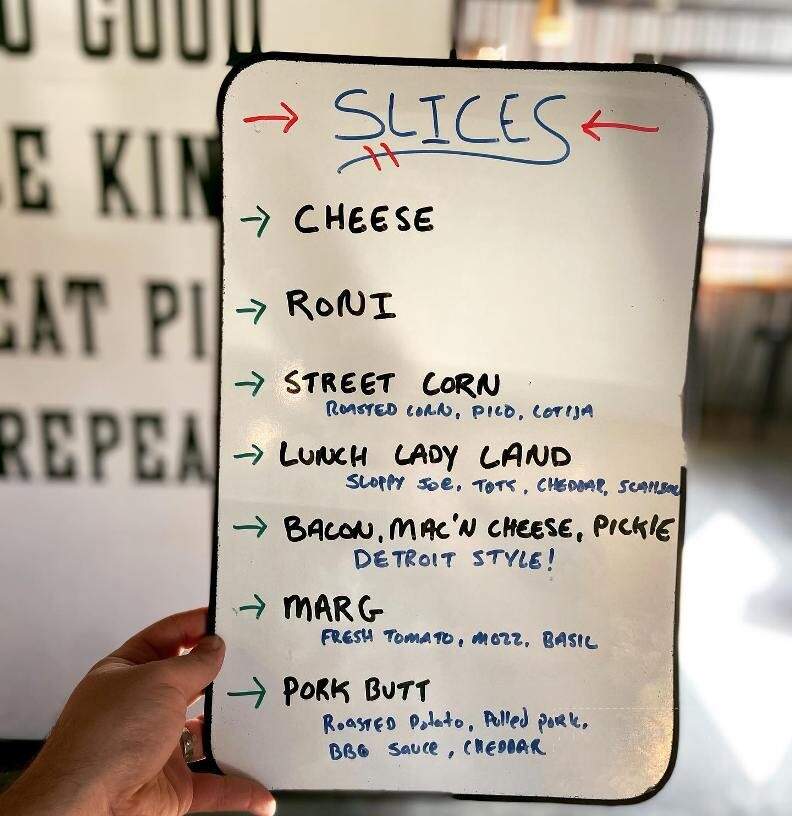 GOOD
E KIN
EAT PI
REPEA
→ SLICES ←
→ CHEESE
→ RONI
→ STREET CORN
ROASTED CORN, PICO, COTIJA
→ LUNCH LADY LAND
SLOPPY JOE, TOTS, CHEDDAR,
→ BACON, MAC'N CHEESE, PICKLE
DETROIT STYLE!
→ MARG
FRESH TOMATO, MOZZ, BASIL
→ PORK BUTT
ROASTED Potato, Pulled pork,
BBQ Sauce, CHEDDAR